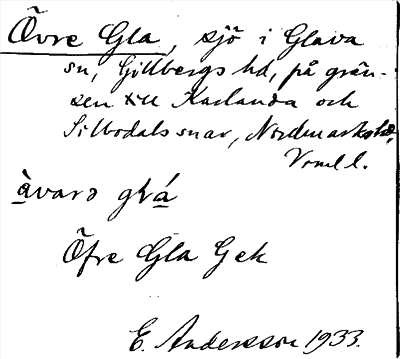 Övre Gla, sjö i Glava
sn, Gillbergs hd, på grän-
sen till Karlanda och
Silbodals snar, Nordmarks hd,
Vrml l.
àvarə gɫá
Öfre Gla Gek
E. Andersson 1933.